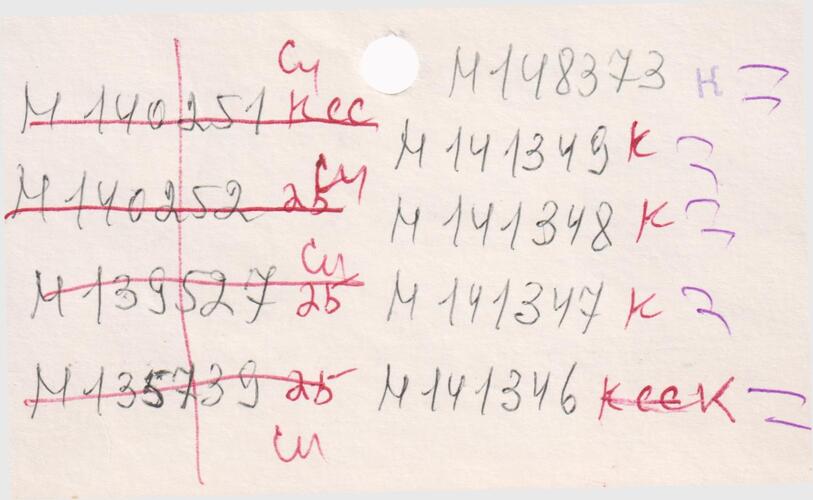 Си
М 140251 ксс
Си
М 140252 25
Си
М 139527 25
М 135739 25
Си
М 148373 к
М 141349 к
М 141348 к
М 141347 к
М 141346 ксск